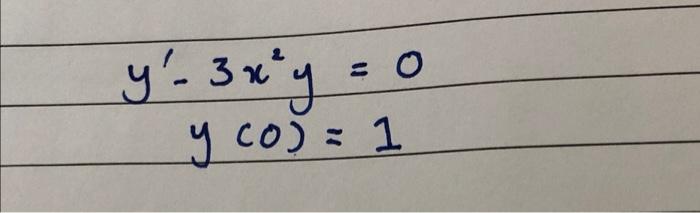 y' - 3x²y = 0
y(0) = 1